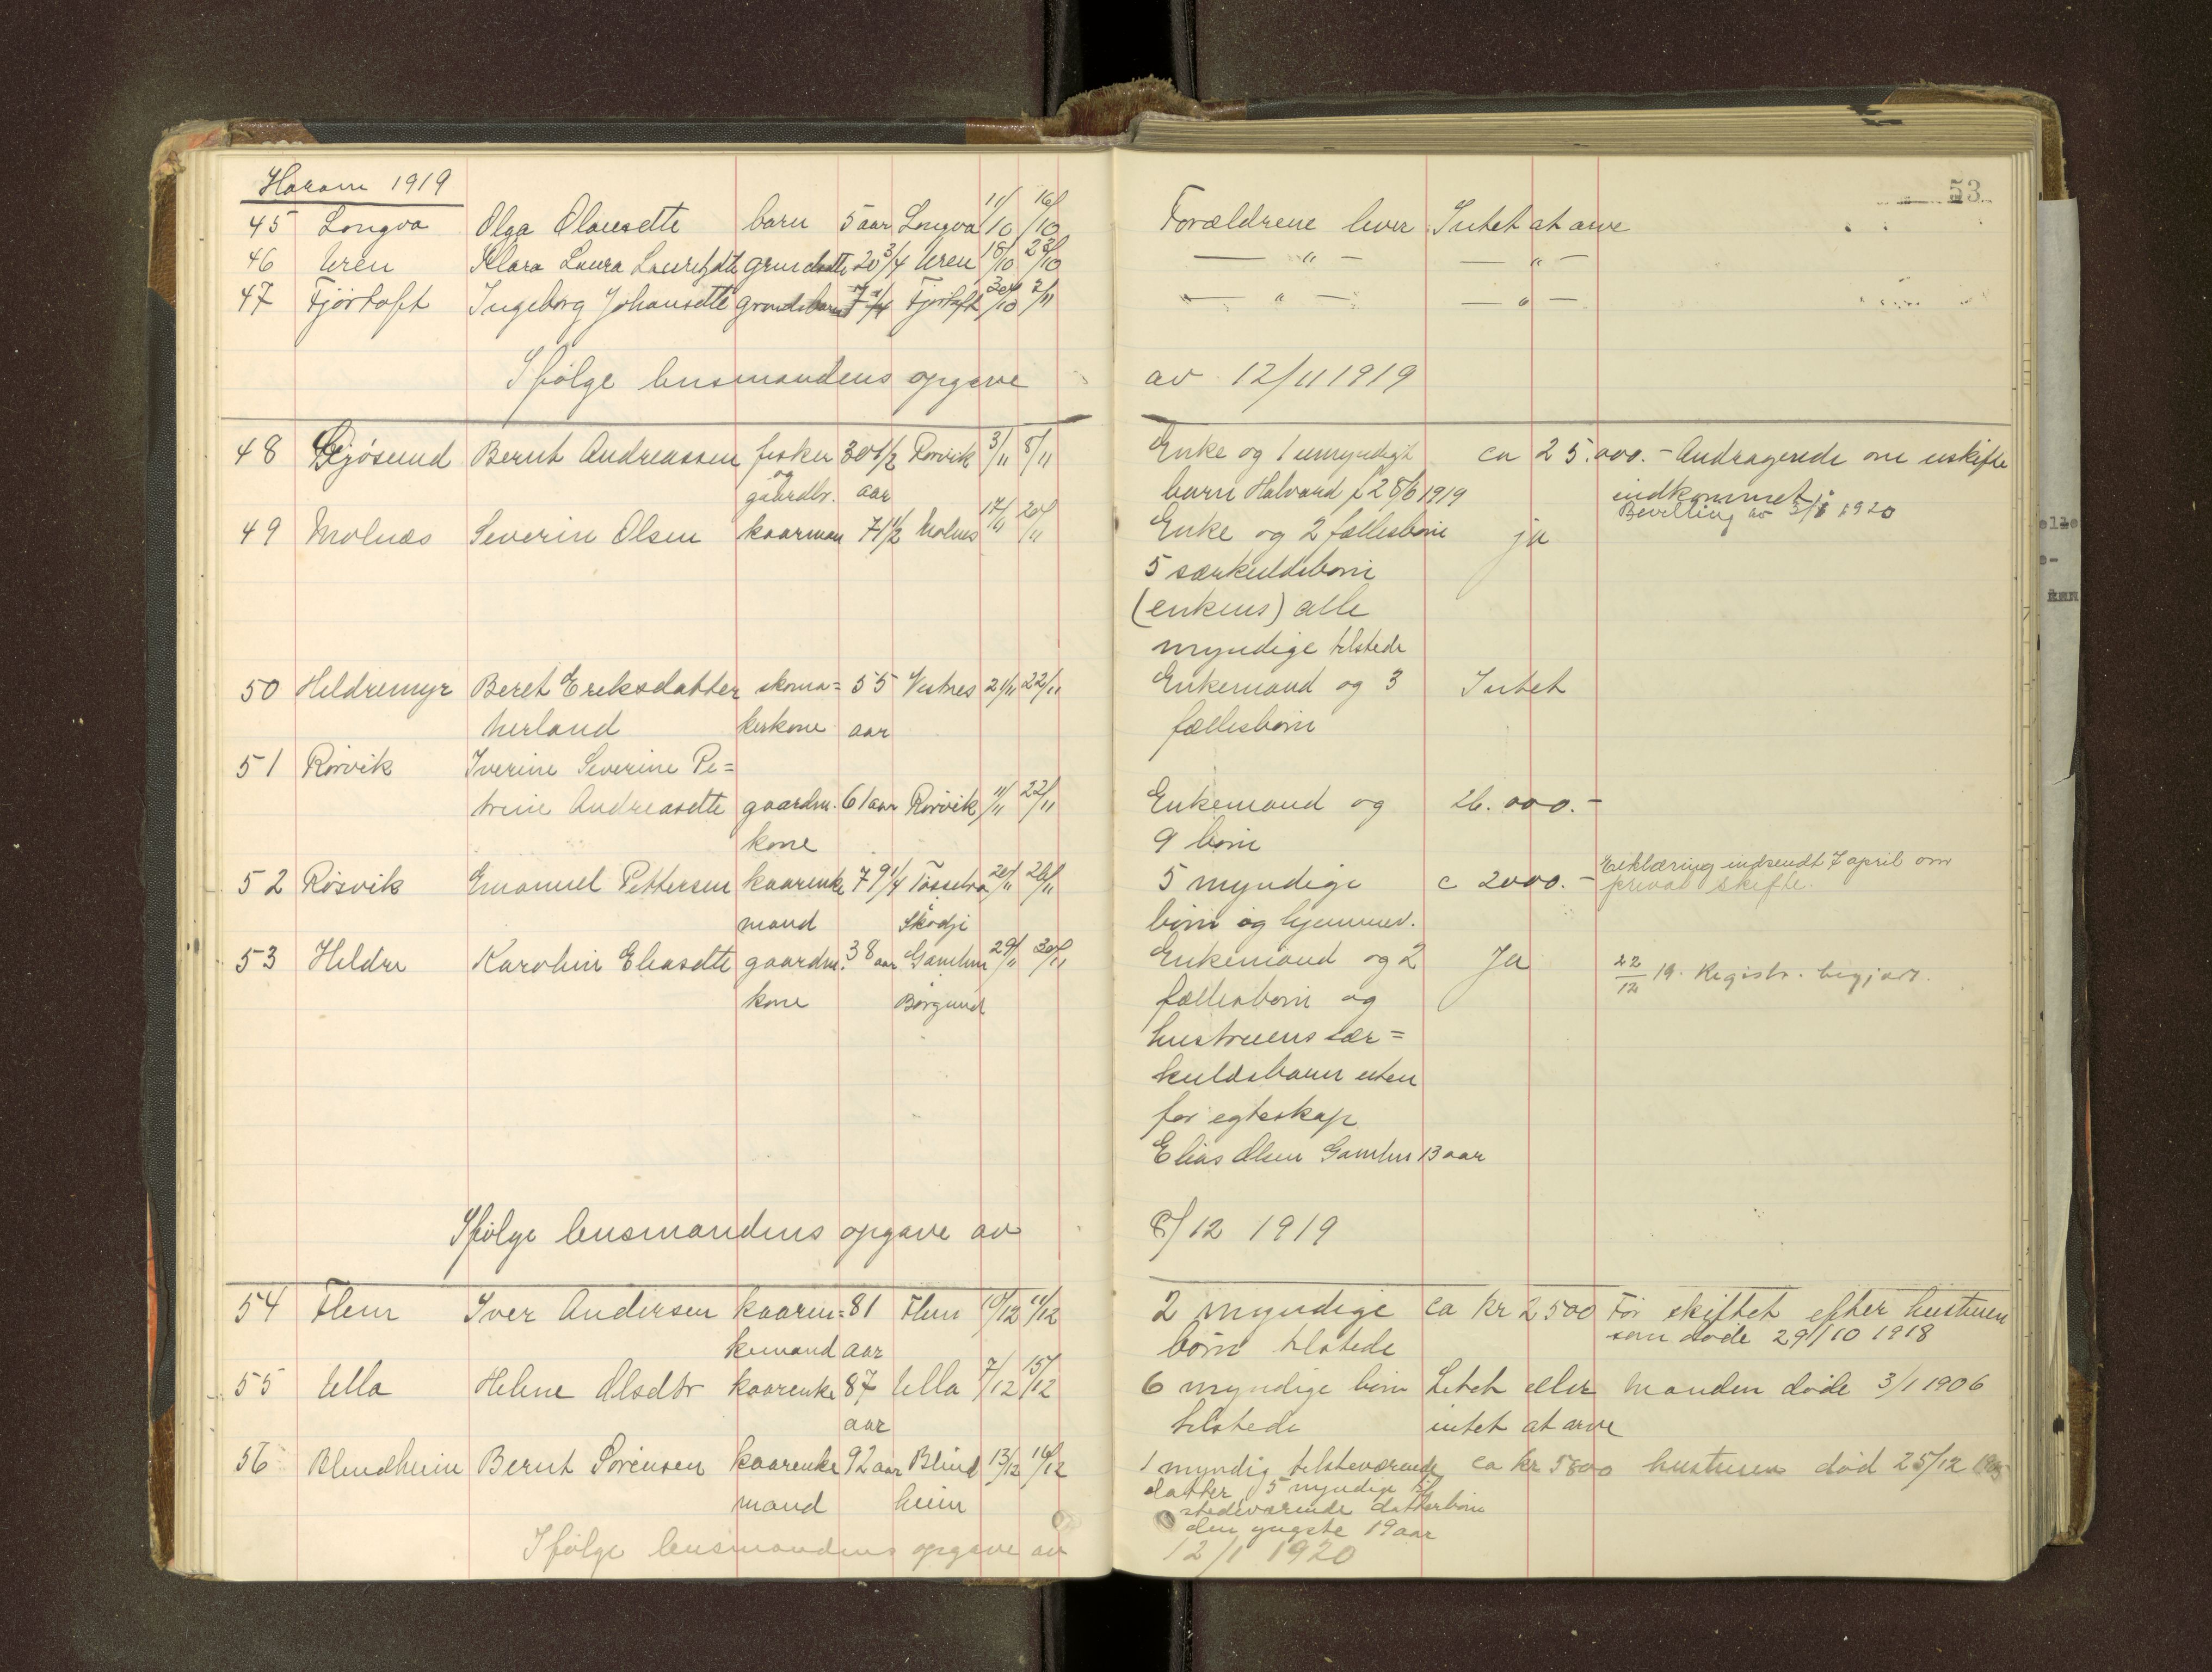 Haram 1919
53
45 Longva Olga Olausdtt barn 5 aar Longva 11/10 16/10 Forældrene lever Intet at arve
46 Uren Klara Laura Lauritzdtt grmdsdtt 20 3/4 Uren 18/10 23/10 — " — — " —
47 Fjørtoft Ingeborg Johansdtt grmdsbarn 7 1/4 Fjørtoft 30/10 2/11 — " — — " —
Ifølge lensmandens opgave av 12/11 1919
48 Gjøsund Bernt Andreassen fisker 30 1/2 Rørvik 3/11 8/11 Enke og 1 umyndigt ca 25.000.- Andragende om uskifte
og gaardbr. aar barn Halvard f 28/6 1919 indkommet
Bevilling av 3/1 1920
49 Molnæs Severin Olsen kaarman 71 1/2 Molnes 17/11 20/11 Enke og 2 fællesbørn ja
5 særkuldsbørn
(enkens) alle
myndige tilstede
50 Heldremyr Beret Eriksdatter skoma= 55 Vestnes 21/11 22/11 Enkemand og 3 Intet
Nerland kerkone aar fællesbørn
51 Rørvik Iverine Severine Pe=
trine Andreasdtt gaardm. 61 aar Rørvik 11/11 22/11 Enkemand og 26.000.-
kone 9 børn
52 Røsvik Emanuel Pettersen kaarenke 79 1/4 Tøssebro 20/11 26/11 5 myndige c 2000.- Erklæring indsendt 7 april om
privat skifte.
mand Skodji børn og hjemmev.
53 Heldre Karolin Eliasdtt gaardm. 38 aar Gamlem 29/11 30/11 Enkemand og 2 Ja 22/12 19. Registr. begjært.
kone Borgund fællesbørn og
hustruens sær=
kuldsbarn uten
for egteskap
Elias Olsen Gamlem 13 aar
Ifølge lensmandens opgave av 8/12 1919
54 Flem Iver Andersen kaaren= 81 Flem 10/12 11/12 2 myndige ca kr 2500 Før skiftet efter hustruen
kemand aar børn tilstede som døde 29/10 1918
55 Ulla Helene Olsdtr kaarenke 87 Ulla 7/12 15/12 6 myndige børn Litet eller Manden døde 3/1 1906
aar tilstede intet at arve
56 Blindheim Bernt Sørensen kaarenke 92 aar Blind 13/12 16/12 1 myndig tilstedværende ca kr 5800 hustruen død 25/12
mand heim datter, 5 myndige til
stedeværende datterbørn
den yngste 19 aar
Ifølge lensmandens opgave av 12/1 1920